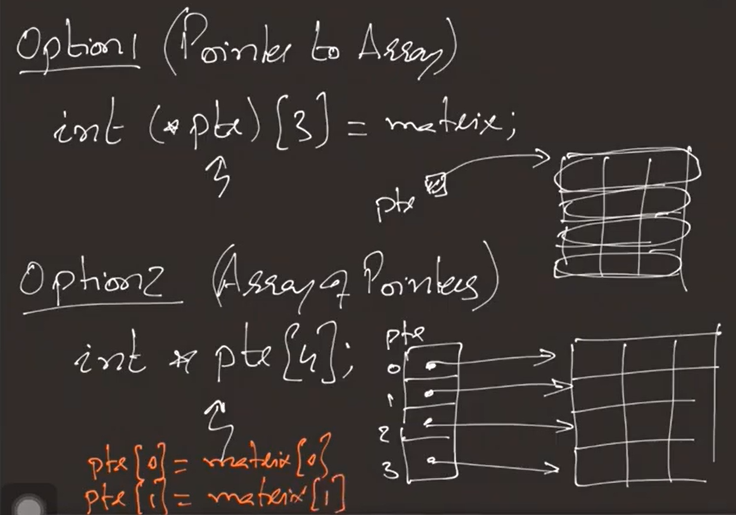 Option1 (Pointer to Array)
int (*ptr)[3] = matrix;
ptr
Option2 (Array of Pointers)
int * ptr[4];
ptr
0
1
2
3
ptr[0] = matrix[0]
ptr[1] = matrix[1]